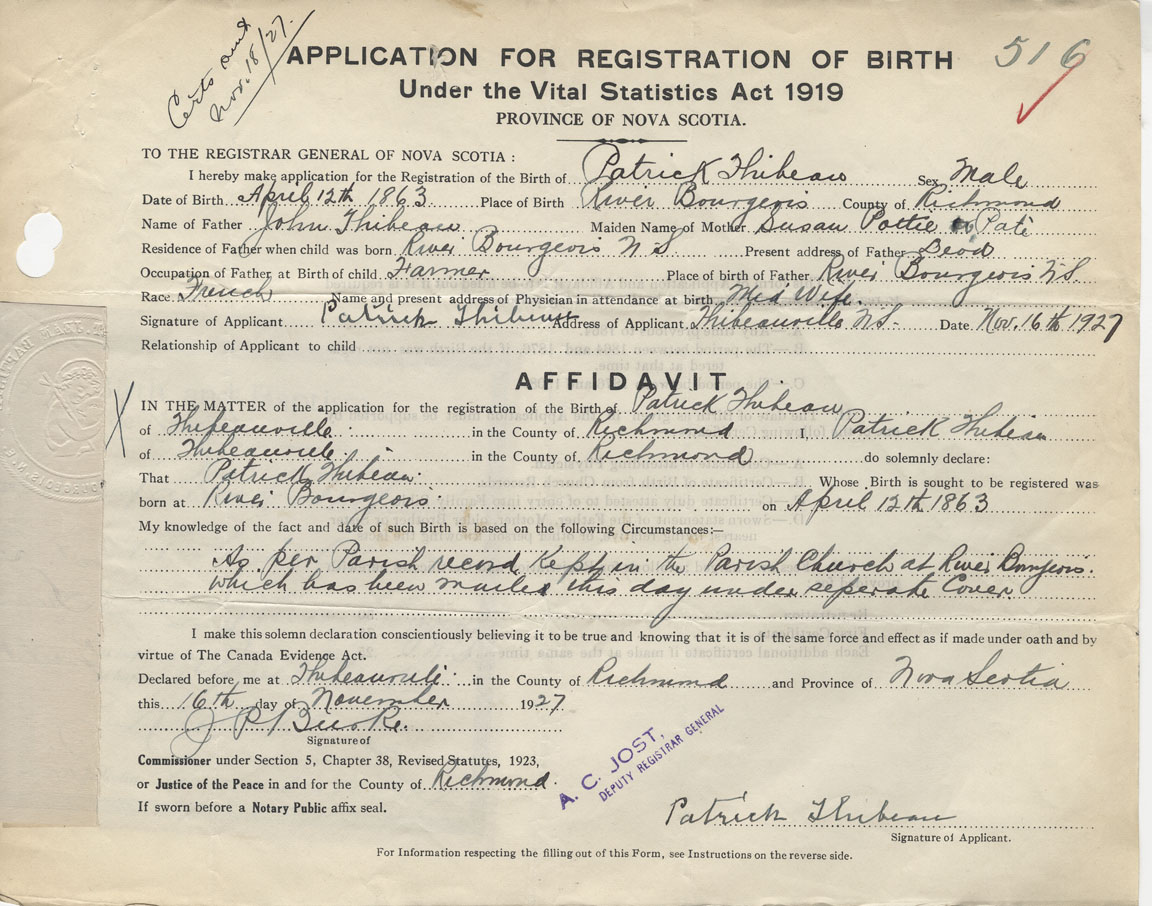 Certs sent
Nov. 18/27.
516
APPLICATION FOR REGISTRATION OF BIRTH
Under the Vital Statistics Act 1919
PROVINCE OF NOVA SCOTIA.
TO THE REGISTRAR GENERAL OF NOVA SCOTIA :
I hereby make application for the Registration of the Birth of Patrick Thibeau Sex Male
Date of Birth April 12th 1863 Place of Birth River Bourgeois County of Richmond
Name of Father John Thibeau Maiden Name of Mother Susan Pottie or Paté
Residence of Father when child was born River Bourgeois N S Present address of Father Dead
Occupation of Father at Birth of child Farmer Place of birth of Father River Bourgeois N.S.
Race French Name and present address of Physician in attendance at birth Mid Wife.
Signature of Applicant Patrick Thibeau Address of Applicant Thibeauville N.S. Date Nov. 16th 1927
Relationship of Applicant to child
AFFIDAVIT
IN THE MATTER of the application for the registration of the Birth of Patrick Thibeau
of Thibeauville in the County of Richmond I, Patrick Thibeau
of Thibeauville in the County of Richmond do solemnly declare:
That Patrick Thibeau Whose Birth is sought to be registered was
born at River Bourgeois on April 12th 1863
My knowledge of the fact and date of such Birth is based on the following Circumstances:—
As per Parish record Kept in the Parish Church at River Bourgeois.
which has been mailed this day under seperate Cover.
I make this solemn declaration conscientiously believing it to be true and knowing that it is of the same force and effect as if made under oath and by
virtue of The Canada Evidence Act.
Declared before me at Thibeauville in the County of Richmond and Province of Nova Scotia
this 16th day of November 1927
J P Burke.
Signature of
Commissioner under Section 5, Chapter 38, Revised Statutes, 1923,
or Justice of the Peace in and for the County of Richmond.
If sworn before a Notary Public affix seal.
A. C. JOST,
DEPUTY REGISTRAR GENERAL
Patrick Thibeau
Signature of Applicant.
For Information respecting the filling out of this Form, see Instructions on the reverse side.